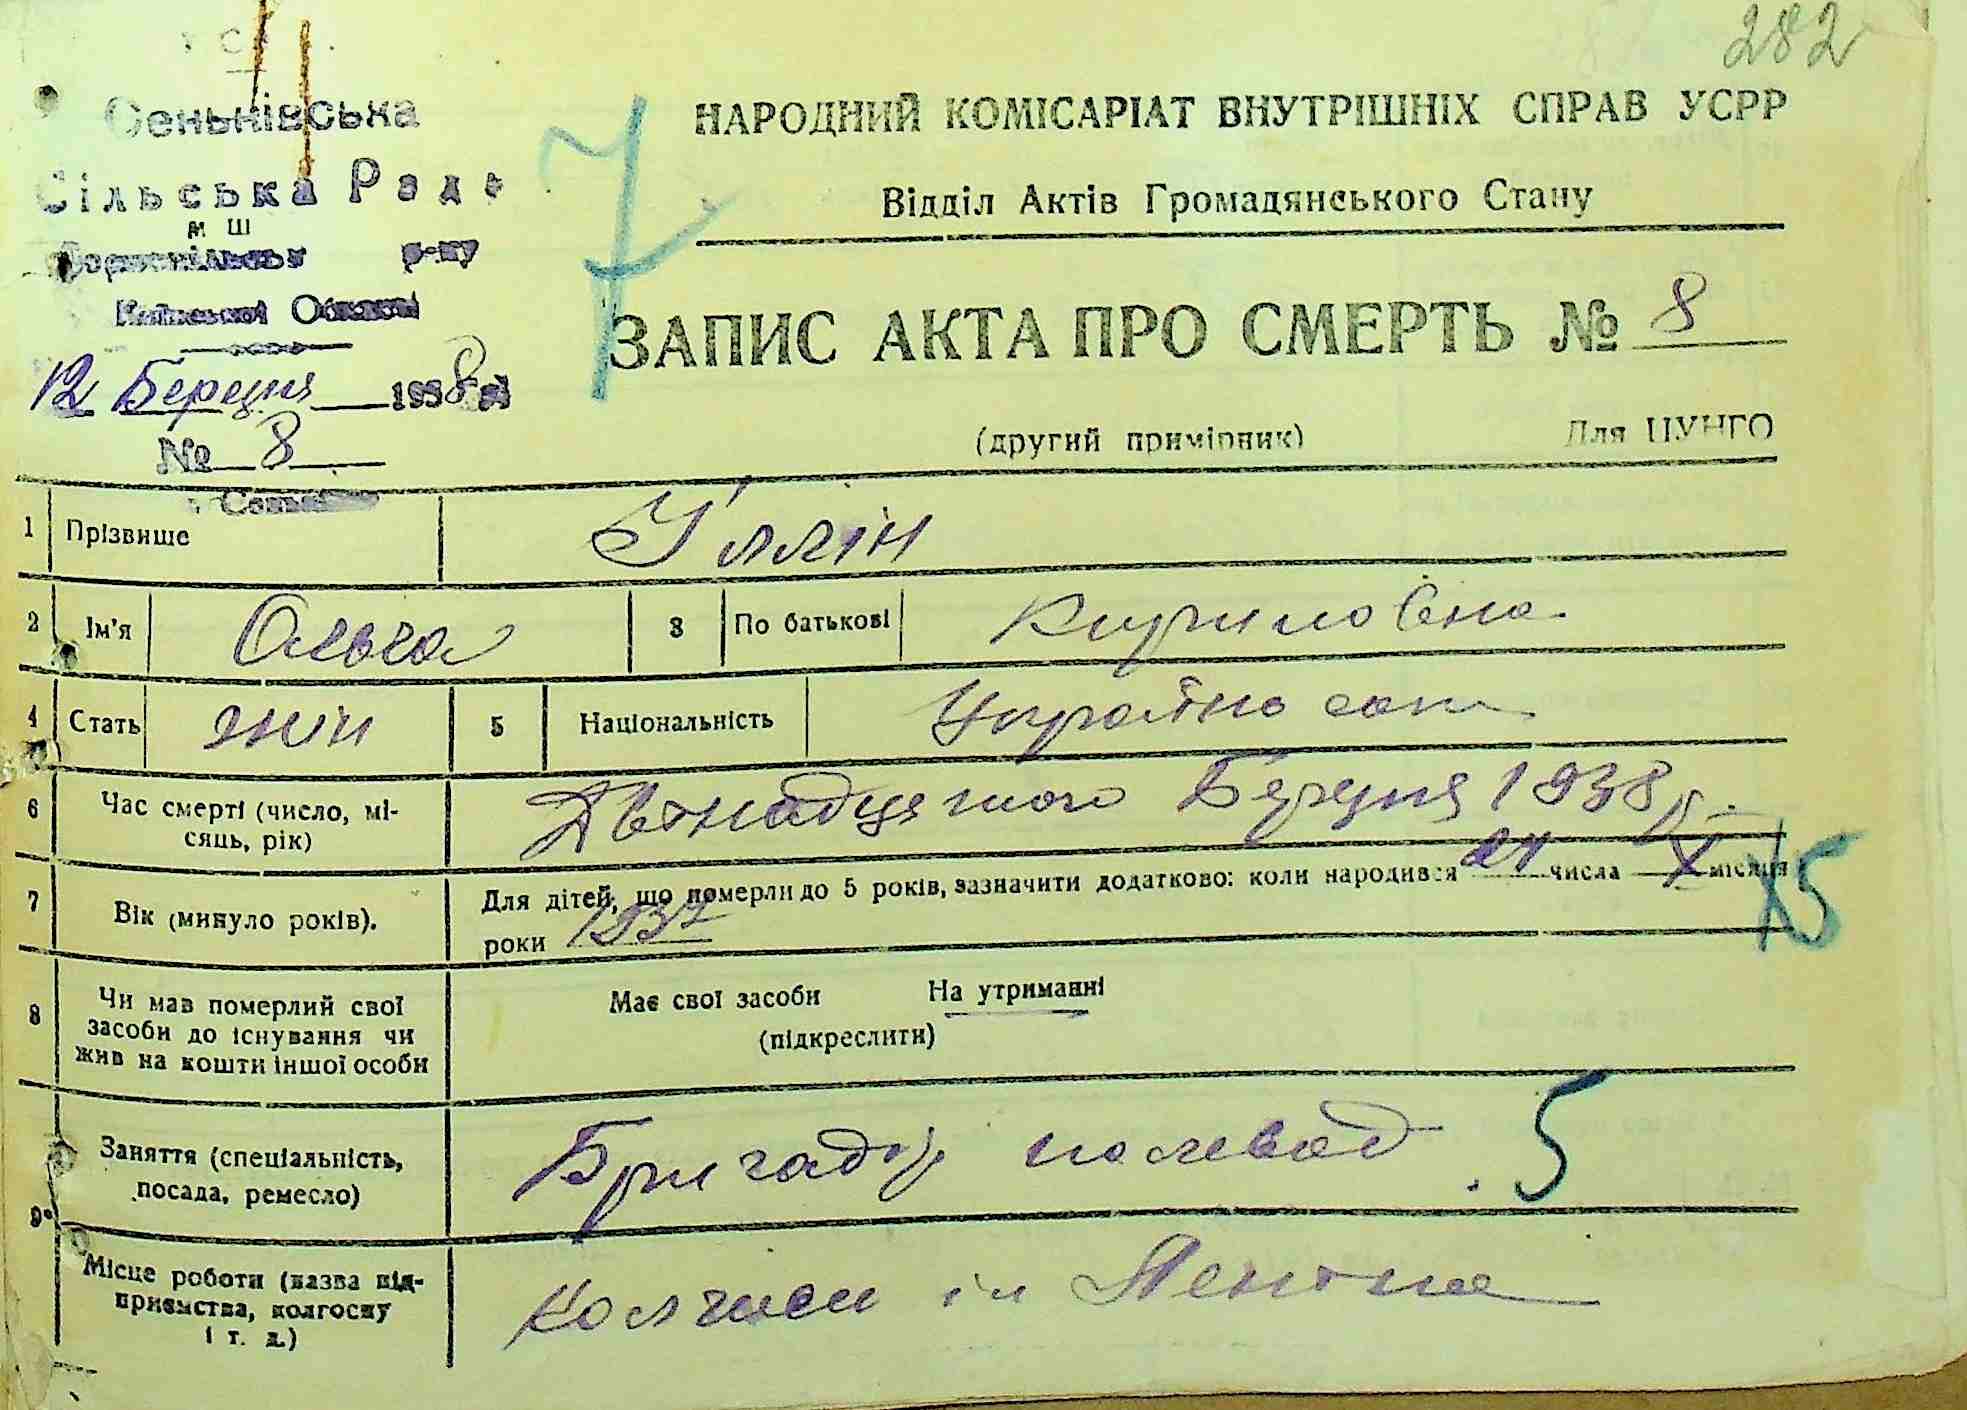 282
Сеньківська
Сільська Рада
Бориспільськ р-ну
Київської Области
12 Березня 1938 р.
№ 8
7
НАРОДНИЙ КОМІСАРІАТ ВНУТРІШНІХ СПРАВ УСРР
Відділ Актів Громадянського Стану
ЗАПИС АКТА ПРО СМЕРТЬ № 8
(другий примірник) Для ЦУНГО
1 Прізвише Іллін
2 Ім'я Ольга 3 По батькові Кириловна
4 Стать жін 5 Національність Українка
6 Час смерті (число, мі-
сяць, рік) Двѣнадцятого Березня 1938 р.
7 Вік (минуло років). Для дітей, що померли до 5 років, зазначити додатково: коли народився 21 числа X місяця
роки 1937
15
8 Чи мав померлий свої
засоби до існування чи
жив на кошти іншої особи
Має свої засоби На утриманні
(підкреслити)
9 Заняття (спеціальність,
посада, ремесло) Бригадір полевод 5
Місце роботи (назва під-
приємства, колгоспу
і т. д.) Колгосп ім Лентна